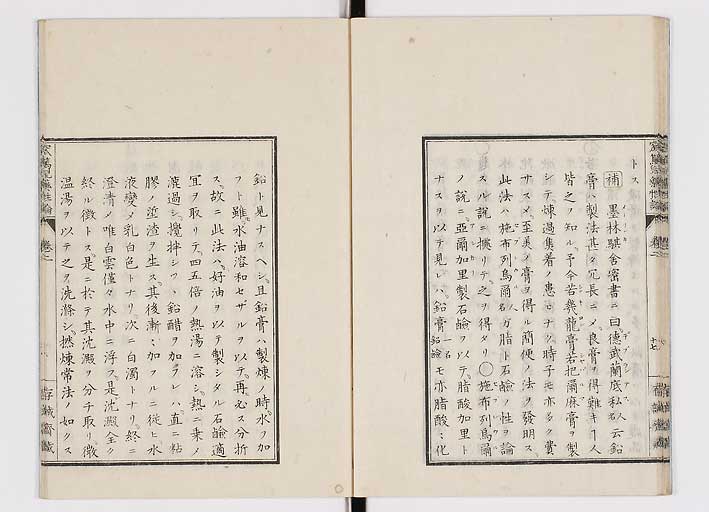 トス
補 墨林騏舎密書ニ曰德武蘭底私人名云鉛
膏ハ製法甚タ冗長ニメ良膏ヲ得難キヿ人
皆之ヲ知ル予今若幾龍膏若把爾麻膏ヲ製
シテ煉過焦着ノ患ヒナク時子モ亦多ク費
サスメ至美ノ膏ヲ得ル簡便ノ法ヲ發明ス
此法ハ施布列烏爾人名カ脂ト石鹼ノ性ヲ論
スル説ニ據リテ之ヲ得タリ○施布列烏爾
ノ説ニ亞爾加里製石鹼ヲ以テ脂酸加里ト
ナスヲ以テ見レハ鉛膏一名鉛鹼モ亦脂酸ニ化
鉛ト見ナスヘシ且鉛膏ハ製煉ノ時水ヲ加
フト雖水油溶和セザルヲ以テ再必ス分析
ス故ニ此法ハ好油ヲ以テ製シタル石鹼適
宜ヲ取リテ四五倍ノ熱湯ニ溶シ熱ニ乗メ
漉過シ攪拌シツヽ鉛醋ヲ加フレハ直ニ粘
膠ノ渣ヲ生ス其後漸ニ加フルニ從ヒ水
液變メ乳白色トナリ次ニ白濁トナリ終ニ
澄清メ唯白雲僅々水中ニ浮フ是沈澱全ク
終ル徴トス是ニ於テ其沈澱ヲ分チ取リ微
温湯ヲ以テ之ヲ洗滌シ撚煉常法ノ如クス